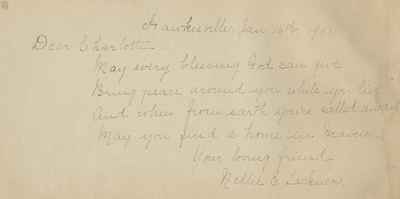 Hawkesville, Jan 16th, 190
Dear Charlotte
May every blessing God can give
Bring peace around you while you live
And when from earth you're called away
May you find a home in Heaven
Your loving friend
Nellie E.